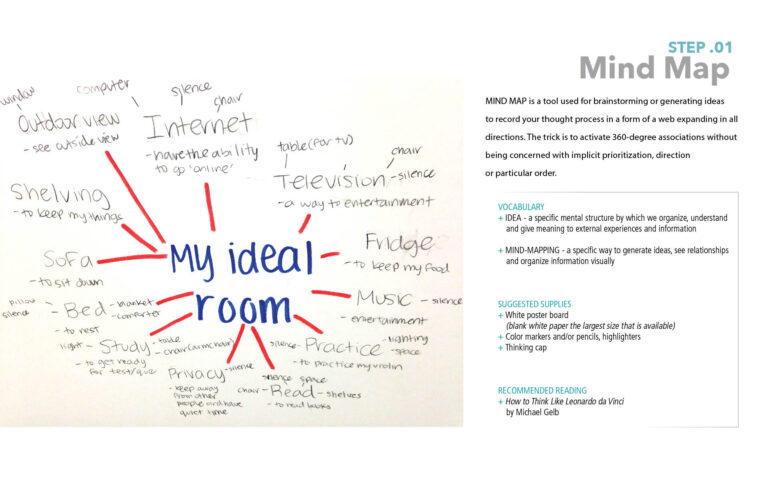 STEP .01
Mind Map
MIND MAP is a tool used for brainstorming or generating ideas
to record your thought process in a form of a web expanding in all
directions. The trick is to activate 360-degree associations without
being concerned with implicit prioritization, direction
or particular order.
VOCABULARY
+ IDEA - a specific mental structure by which we organize, understand
and give meaning to external experiences and information
+ MIND-MAPPING - a specific way to generate ideas, see relationships
and organize information visually
SUGGESTED SUPPLIES
+ White poster board
(blank white paper the largest size that is available)
+ Color markers and/or pencils, highlighters
+ Thinking cap
RECOMMENDED READING
+ How to Think Like Leonardo da Vinci
by Michael Gelb
window
computer
silence
chair
Outdoor view
- see outside view
Internet
- have the ability
to go 'online'
table (for tv)
chair
Television - silence
- a way to entertainment
Shelving
- to keep my things
Fridge
- to keep my food
My ideal
room
Sofa
- to sit down
Music - silence
- entertainment
pillow
silence
- Bed - blanket
- comforter
- to rest
light - Study - table
- chair (armchair)
- to get ready
for test/quiz
silence - Practice - lighting
- space
- to practice my violin
Privacy - silence
- keep away
from other
people and have
quiet time
silence space
chair - Read - shelves
- to read books